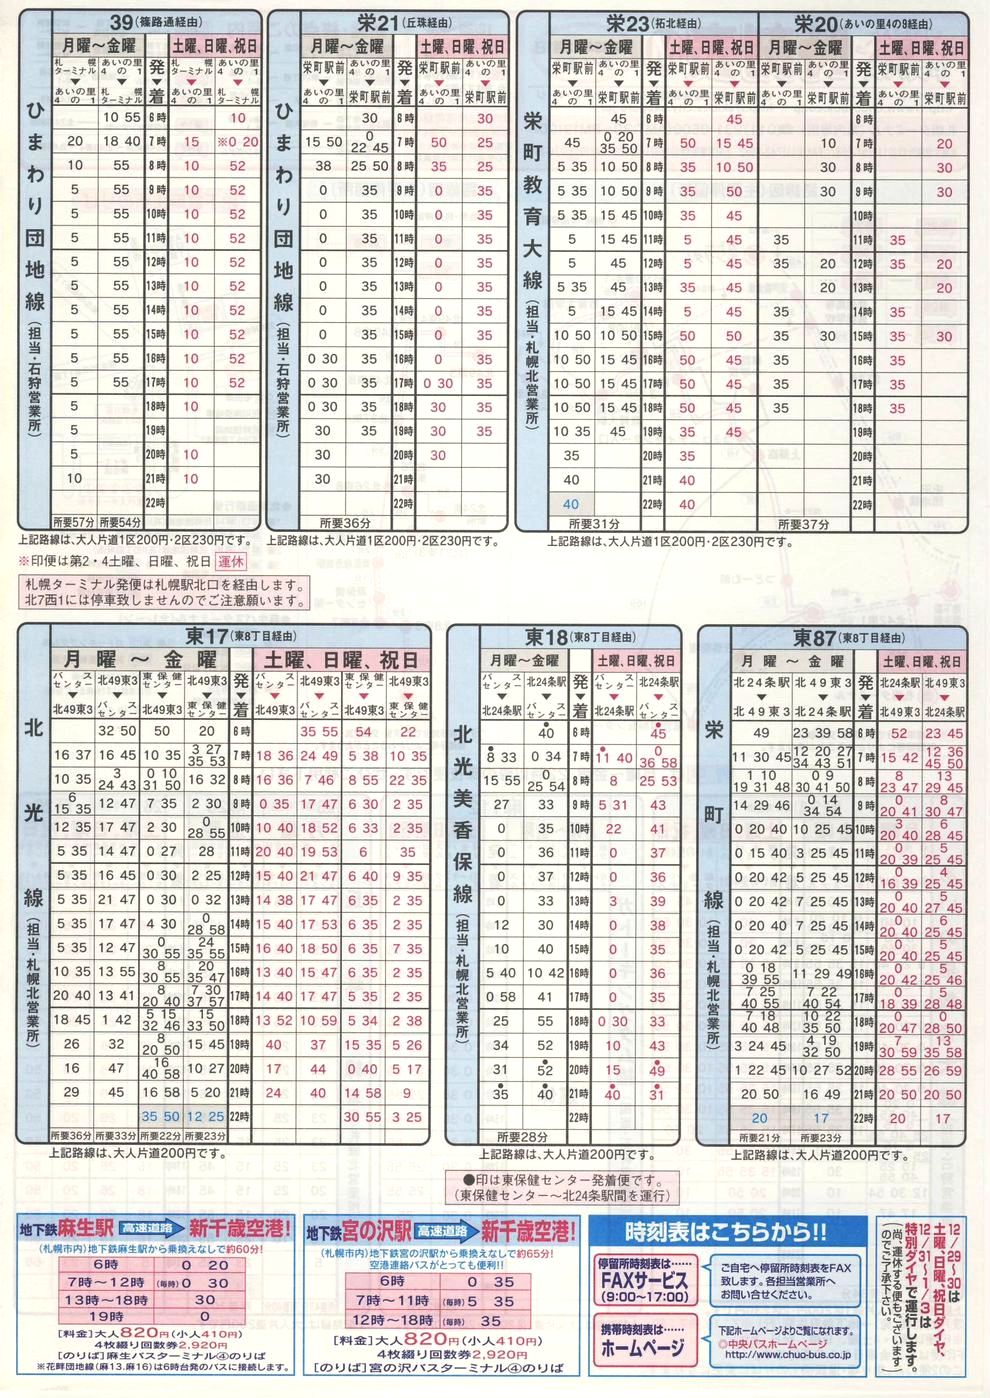 39(篠路通経由)
ひまわり団地線(担当・石狩営業所)
月曜〜金曜 発着 土曜、日曜、祝日
札幌ターミナル▼あいの里4の1 あいの里4の1▼札幌ターミナル 札幌ターミナル▼あいの里4の1 あいの里4の1▼札幌ターミナル
10 55 6時 10
20 18 40 7時 15 ※0 20
10 55 8時 10 52
5 55 9時 10 52
5 55 10時 10 52
5 55 11時 10 52
5 55 12時 10 52
5 55 13時 10 52
5 55 14時 10 52
5 55 15時 10 52
5 55 16時 10 52
5 55 17時 10 52
5 18時 10
5 19時
5 20時 10
10 21時 10
22時
所要57分 所要54分
上記路線は、大人片道1区200円・2区230円です。
※印便は第2・4土曜、日曜、祝日運休
札幌ターミナル発便は札幌駅北口を経由します。
北7西1には停車致しませんのでご注意願います。
栄21(丘珠経由)
ひまわり団地線(担当・石狩営業所)
月曜〜金曜 発着 土曜、日曜、祝日
栄町駅前▼あいの里4の1 あいの里4の1▼栄町駅前 栄町駅前▼あいの里4の1 あいの里4の1▼栄町駅前
30 6時 30
15 50 0 22 45 7時 50 25
38 25 50 8時 35 25
0 35 9時 0 35
0 35 10時 0 35
0 35 11時 0 35
0 35 12時 0 35
0 35 13時 0 35
0 35 14時 0 35
0 35 15時 0 35
0 30 35 16時 0 35
0 30 35 17時 0 30 35
0 30 35 18時 30 35
30 35 19時 30 35
30 20時 30
30 21時
22時
所要36分
上記路線は、大人片道1区200円・2区230円です。
栄23(拓北経由) 栄20(あいの里4の9経由)
栄町教育大線(担当・札幌北営業所)
月曜〜金曜 発着 土曜、日曜、祝日 月曜〜金曜 発着 土曜、日曜、祝日
栄町駅前▼あいの里4の1 あいの里4の1▼栄町駅前 栄町駅前▼あいの里4の1 あいの里4の1▼栄町駅前 栄町駅前▼あいの里4の1 あいの里4の1▼栄町駅前 栄町駅前▼あいの里4の1 あいの里4の1▼栄町駅前
45 6時 45 6時
45 0 20 35 50 7時 50 15 45 10 7時 20
5 35 10 50 8時 35 10 50 30 8時 30
5 35 10 50 9時 35 50 30 9時 30
5 35 15 45 10時 35 45 10時
5 15 45 11時 5 45 35 11時 35
5 45 12時 5 45 35 20 12時 35 20
5 35 45 13時 35 45 20 13時 20
5 15 45 14時 5 45 35 14時 35
10 50 10 50 15時 50 50 35 30 15時 35 30
10 50 15 45 16時 50 45 35 16時 35
10 50 15 45 17時 50 45 35 17時 35
10 50 15 45 18時 50 45 35 18時 35
10 35 45 19時 35 45 19時
35 20時 35 20時
40 21時 40 21時
40 22時 40 22時
所要31分 所要37分
上記路線は、大人片道1区200円・2区230円です。
東17(東8丁目経由)
北光線(担当・札幌北営業所)
月曜〜金曜 発着 土曜、日曜、祝日
バスセンター▼北49東3 北49東3▼バスセンター 東保健センター▼北49東3 北49東3▼東保健センター バスセンター▼北49東3 北49東3▼バスセンター 東保健センター▼北49東3 北49東3▼東保健センター
32 50 50 20 6時 35 55 54 22
16 37 16 45 10 35 3 27 35 53 7時 18 36 24 49 5 38 10 35
10 35 3 24 43 0 10 31 50 16 32 8時 16 36 7 46 8 55 22 35
6 15 35 12 47 7 35 2 30 9時 0 35 17 47 6 30 2 35
12 35 17 47 2 30 0 28 55 10時 10 40 18 52 6 33 2 35
5 35 14 47 0 27 28 11時 20 40 19 53 6 35
5 35 16 45 0 30 2 25 12時 15 40 21 47 6 40 9 35
5 35 21 47 0 30 0 32 13時 14 38 17 47 6 35 2 35
5 35 17 47 4 30 0 28 58 14時 15 40 17 53 6 35 2 35
5 35 12 47 0 30 55 24 35 55 15時 16 40 18 50 6 35 7 35
10 35 13 55 8 30 55 20 35 47 16時 13 40 15 47 6 35 2 35
20 40 13 41 8 20 40 7 30 37 57 17時 14 40 17 47 5 35 2 35
18 45 1 42 5 15 32 46 15 33 50 18時 13 52 10 59 5 34 2 38
26 32 8 20 50 15 45 19時 40 37 15 35 5 26
16 47 16 40 58 10 27 20時 17 44 0 40 5 17
29 45 16 58 5 20 21時 24 40 14 58 9
35 50 12 25 22時 30 55 3 25
所要36分 所要33分 所要22分 所要23分
上記路線は、大人片道200円です。
東18(東8丁目経由)
北光美香保線(担当・札幌北営業所)
月曜〜金曜 発着 土曜、日曜、祝日
バスセンター▼北24条駅 北24条駅▼バスセンター バスセンター▼北24条駅 北24条駅▼バスセンター
●40 6時 ●45
●8 33 0 34 7時 ●11 40 0 36 58
15 55 0 25 54 8時 8 25 53
27 33 9時 5 31 43
0 35 10時 22 41
0 36 11時 0 37
0 37 12時 0 36
0 33 13時 3 39
12 30 14時 0 38
10 40 15時 0 40
5 40 10 42 16時 0 36
0 58 41 17時 0 35
25 55 18時 0 30 33
34 52 19時 10 43
31 ●52 20時 15 ●49
●35 ●40 21時 ●40 ●31
22時
所要28分
上記路線は、大人片道200円です。
●印は東保健センター発着便です。
(東保健センター〜北24条駅間を運行)
東87(東8丁目経由)
栄町線(担当・札幌北営業所)
月曜〜金曜 発着 土曜、日曜、祝日
北24条駅▼北49東3 北49東3▼北24条駅 北24条駅▼北49東3 北49東3▼北24条駅
49 23 39 58 6時 52 23 45
11 30 45 12 20 27 34 43 51 7時 15 42 12 36 45 50
1 10 19 31 48 0 9 30 41 50 8時 8 23 47 13 29 45
14 29 46 0 14 34 54 9時 0 20 41 8 30 47
0 20 40 10 25 45 10時 3 20 40 6 28 45
0 15 40 3 25 45 11時 0 20 39 5 25 45
0 20 42 5 25 45 12時 0 16 39 4 25 45
0 20 42 7 25 45 13時 0 20 40 5 27 45
0 20 40 7 25 45 14時 0 20 40 6 25 45
0 20 42 5 25 45 15時 0 20 40 5 25 45
0 18 39 55 11 29 49 16時 0 20 42 5 25 46
7 25 40 55 7 22 40 54 17時 0 18 39 5 28 48
7 18 40 48 10 22 35 50 18時 0 20 47 0 28 50
3 24 45 4 19 32 50 19時 7 30 59 13 35 58
1 22 45 10 27 52 20時 28 55 26 59
20 50 16 49 21時 20 50 20 50
20 17 22時 20 17
所要21分 所要23分
上記路線は、大人片道200円です。
地下鉄麻生駅 高速道路 新千歳空港!
(札幌市内)地下鉄麻生駅から乗換えなしで約60分!
6時 0 20
7時〜12時 (毎時) 0 30
13時〜18時 30
19時 0
[料金]大人820円(小人410円)
4枚綴り回数券2,920円
[のりば]麻生バスターミナル④のりば
※花畔団地線(麻13.麻16)は6時台発のバスに接続します。
地下鉄宮の沢駅 高速道路 新千歳空港!
(札幌市内)地下鉄宮の沢駅から乗換えなしで約65分!
空港連絡バスがとっても便利!!
6時 0 35
7時〜11時 (毎時) 5 35
12時〜18時 (毎時) 35
[料金]大人820円(小人410円)
4枚綴り回数券2,920円
[のりば]宮の沢バスターミナル④のりば
時刻表はこちらから!!
停留所時刻表は……
FAXサービス
(9:00〜17:00)
ご自宅へ停留所時刻表をFAX
致します。各担当営業所へ
お問い合せください。
携帯時刻表は……
ホームページ
下記ホームページよりご覧になれます。
◎中央バスホームページ
http://www.chuo-bus.co.jp
12/29〜30は
土曜、日曜、祝日ダイヤ、
12/31〜1/3は
特別ダイヤで運行します。
(尚、運休する便もございます
のでご了承下さい。)